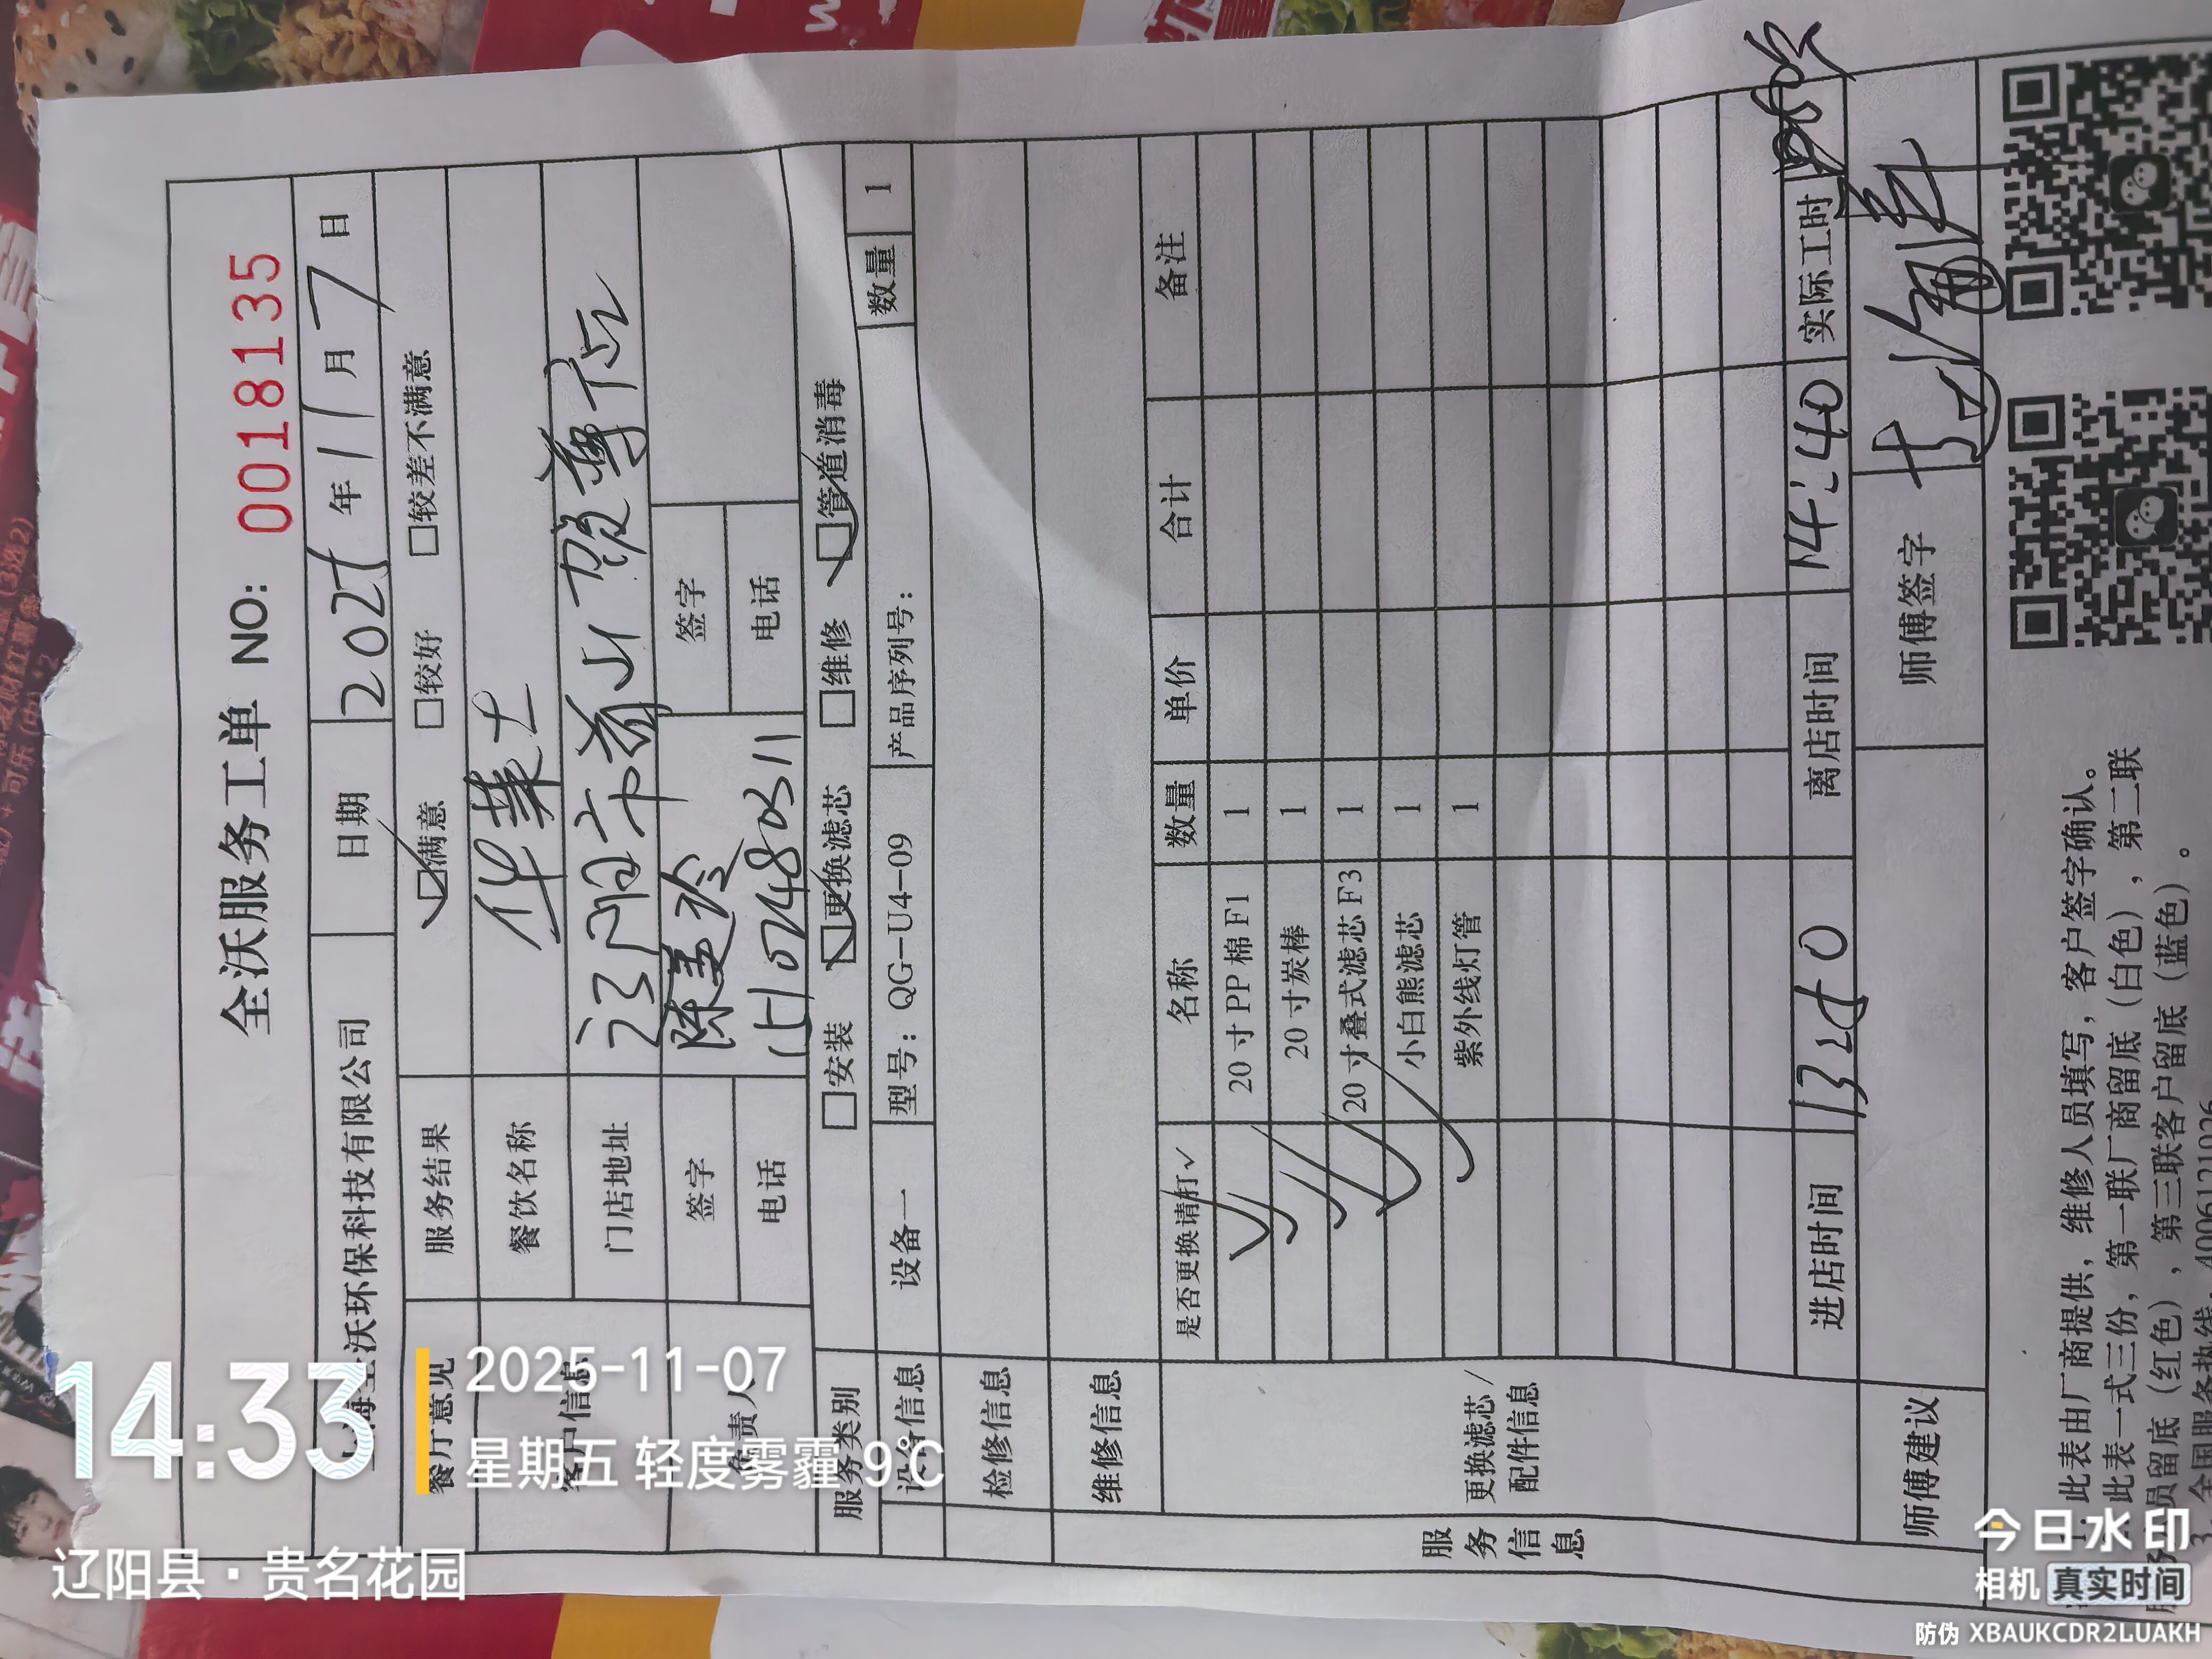 全沃服务工单 NO: 00181135
沃环保科技有限公司 日期 2025 年 11 月 7 日
餐厅意见 服务结果 ☑满意 □较好 □较差不满意
餐饮名称 华莱士
门店地址 辽阳市首山
签字 陈 签字
电话 电话
服务类别 □安装 ☑更换滤芯 □维修 ☑管道消毒
设备信息 设备一 型号: QG-U4-09 产品序列号: 数量 1
检修信息
维修信息
服务信息
更换滤芯/配件信息
是否更换请打√ 名称 数量 单价 合计 备注
√ 20 寸 PP 棉 F1 1
√ 20 寸炭棒 1
√ 20 寸叠式滤芯 F3 1
√ 小白熊滤芯 1
√ 紫外线灯管 1
进店时间 13:50 离店时间 14:40 实际工时
师傅建议 师傅签字
此表由厂商提供，维修人员填写，客户签字确认。
此表一式三份，第一联厂商留底（白色），第二联
员留底（红色），第三联客户留底（蓝色）。
14:33
2025-11-07
星期五 轻度雾霾 9℃
辽阳县·贵名花园
今日水印
相机 真实时间
防伪 XBAUKCDR2LUAKH